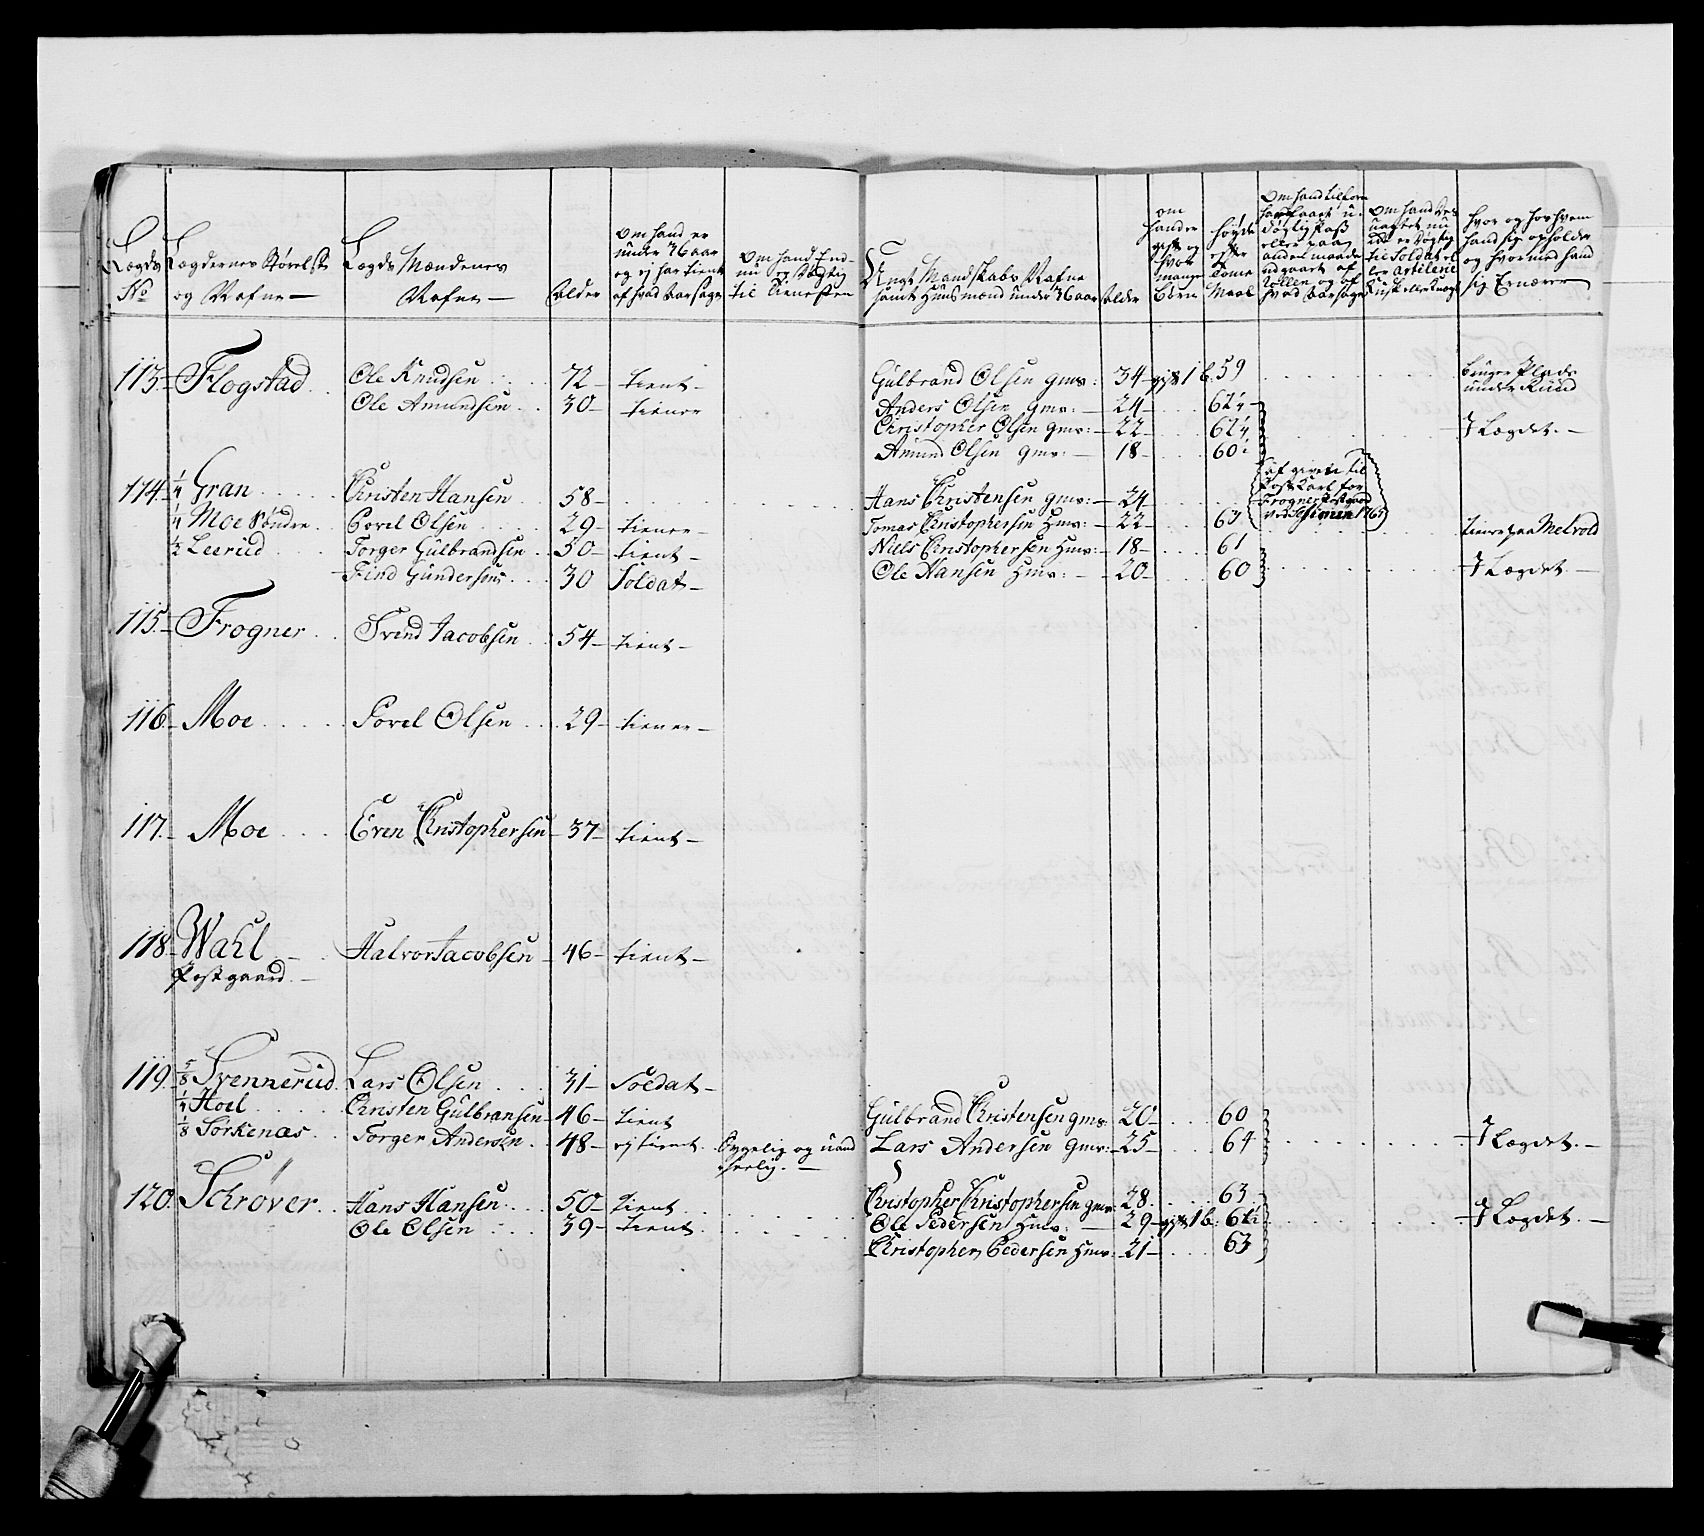 Lægds No
Lægdernes Størelse og Nafne —
Lægds Mændenes Nafne —
Alder
om hand er under 36 aar og ej har tient af hvad Aarsage
om hand End nu er Dygtig til Tienesten
Ungt Mandskabs Nafne samt Huusmænd under 36 aar
Alder
om hand er gift og hvor mange Børn
Høyde efter Tome Maal
om hand tilforn har faaet u-døgtig Pass eller paa anden maade udgaaet af Rollen og af hvad aarsage
om hand Ves
til Soldat el
hvor og hos hvem hand sig opholder og hvormed hand sig Ernærer
113. Flogstad Ole Knudsen 72 tient Gulbrand Olsen gms: 34 gift 1 b. 59 bruger Plads under Ruud
Ole Amundsen 30 tiener Anders Olsen gms: 24 61¼
Christopher Olsen gms: 22 61¼ I Lægdet.
Amund Olsen gms: 18 60½
114. ¼ Gran Christen Hansen 58 Hans Christensen gms: 24 af given til Post Karl for Frogner Postgaard ved Sessionen 1765
¼ Moe Søndre Povel Olsen 29 tiener Tomas Christophersen Hms: 22 63 tiener paa Melvold
½ Leerud Torger Gulbrandsen 50 tient Niels Christophersen Hms: 18 61
Find Gundersens 30 Soldat Ole Hansen Hms: 20 60 I Lægdet
115. Frogner Svend Jacobsen 54 tient
116. Moe Povel Olsen 29 tiener
117. Moe Even Christophersen 37 tient
118. Wahl Halvor Jacobsen 46 tient
Postgaard.
119. ⅝ Svennerud Lars Olsen 31 Soldat
¼ Hoel Christen Gulbransen 46 tient Gulbrand Christensen gms 20 60
⅛ Sørkenæs Torger Andersen 48 ej tient Svagelig og uand seelig. Lars Andersen gms: 25 64 I Lægdet.
120. Schrøver Hans Hansen 50 tient Christopher Christophersen gms 28 63
Ole Olsen 39 tient Ole Pedersen Hms: 29 gift 1 b. 61½ I Lægdet.
Christopher Pedersen Hms: 21 63